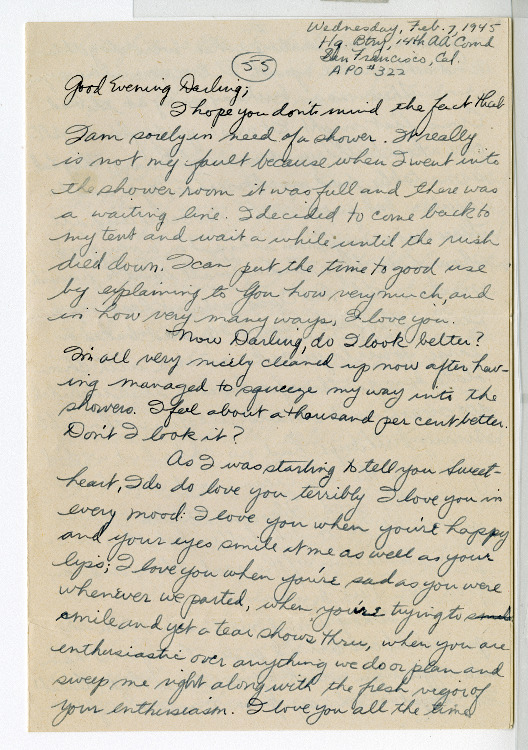 Wednesday, Feb. 7, 1945
Hq. Btry, 14th AA Comd
San Francisco, Cal.
APO #322
55
Good Evening Darling;
I hope you don't mind the fact that
I am sorely in need of a shower. It really
is not my fault because when I went into
the shower room it was full and there was
a waiting line. I decided to come back to
my tent and wait a while until the rush
died down. I can put the time to good use
by explaining to You how very much, and
in how very many ways, I love you.
Now Darling, do I look better?
I'm all very nicely cleaned up now after hav-
ing managed to squeeze my way into the
showers. I feel about a thousand per cent better.
Don't I look it?
As I was starting to tell you Sweet-
heart, I do do love you terribly I love you in
every mood: I love you when you're happy
and your eyes smile at me as well as your
lips; I love you when you're sad as you were
whenever we parted, when you're trying to
smile and yet a tear shows thru, when you are
enthusiastic over anything we do or plan and
sweep me right along with the fresh vigor of
your enthusiasm. I love you all the time